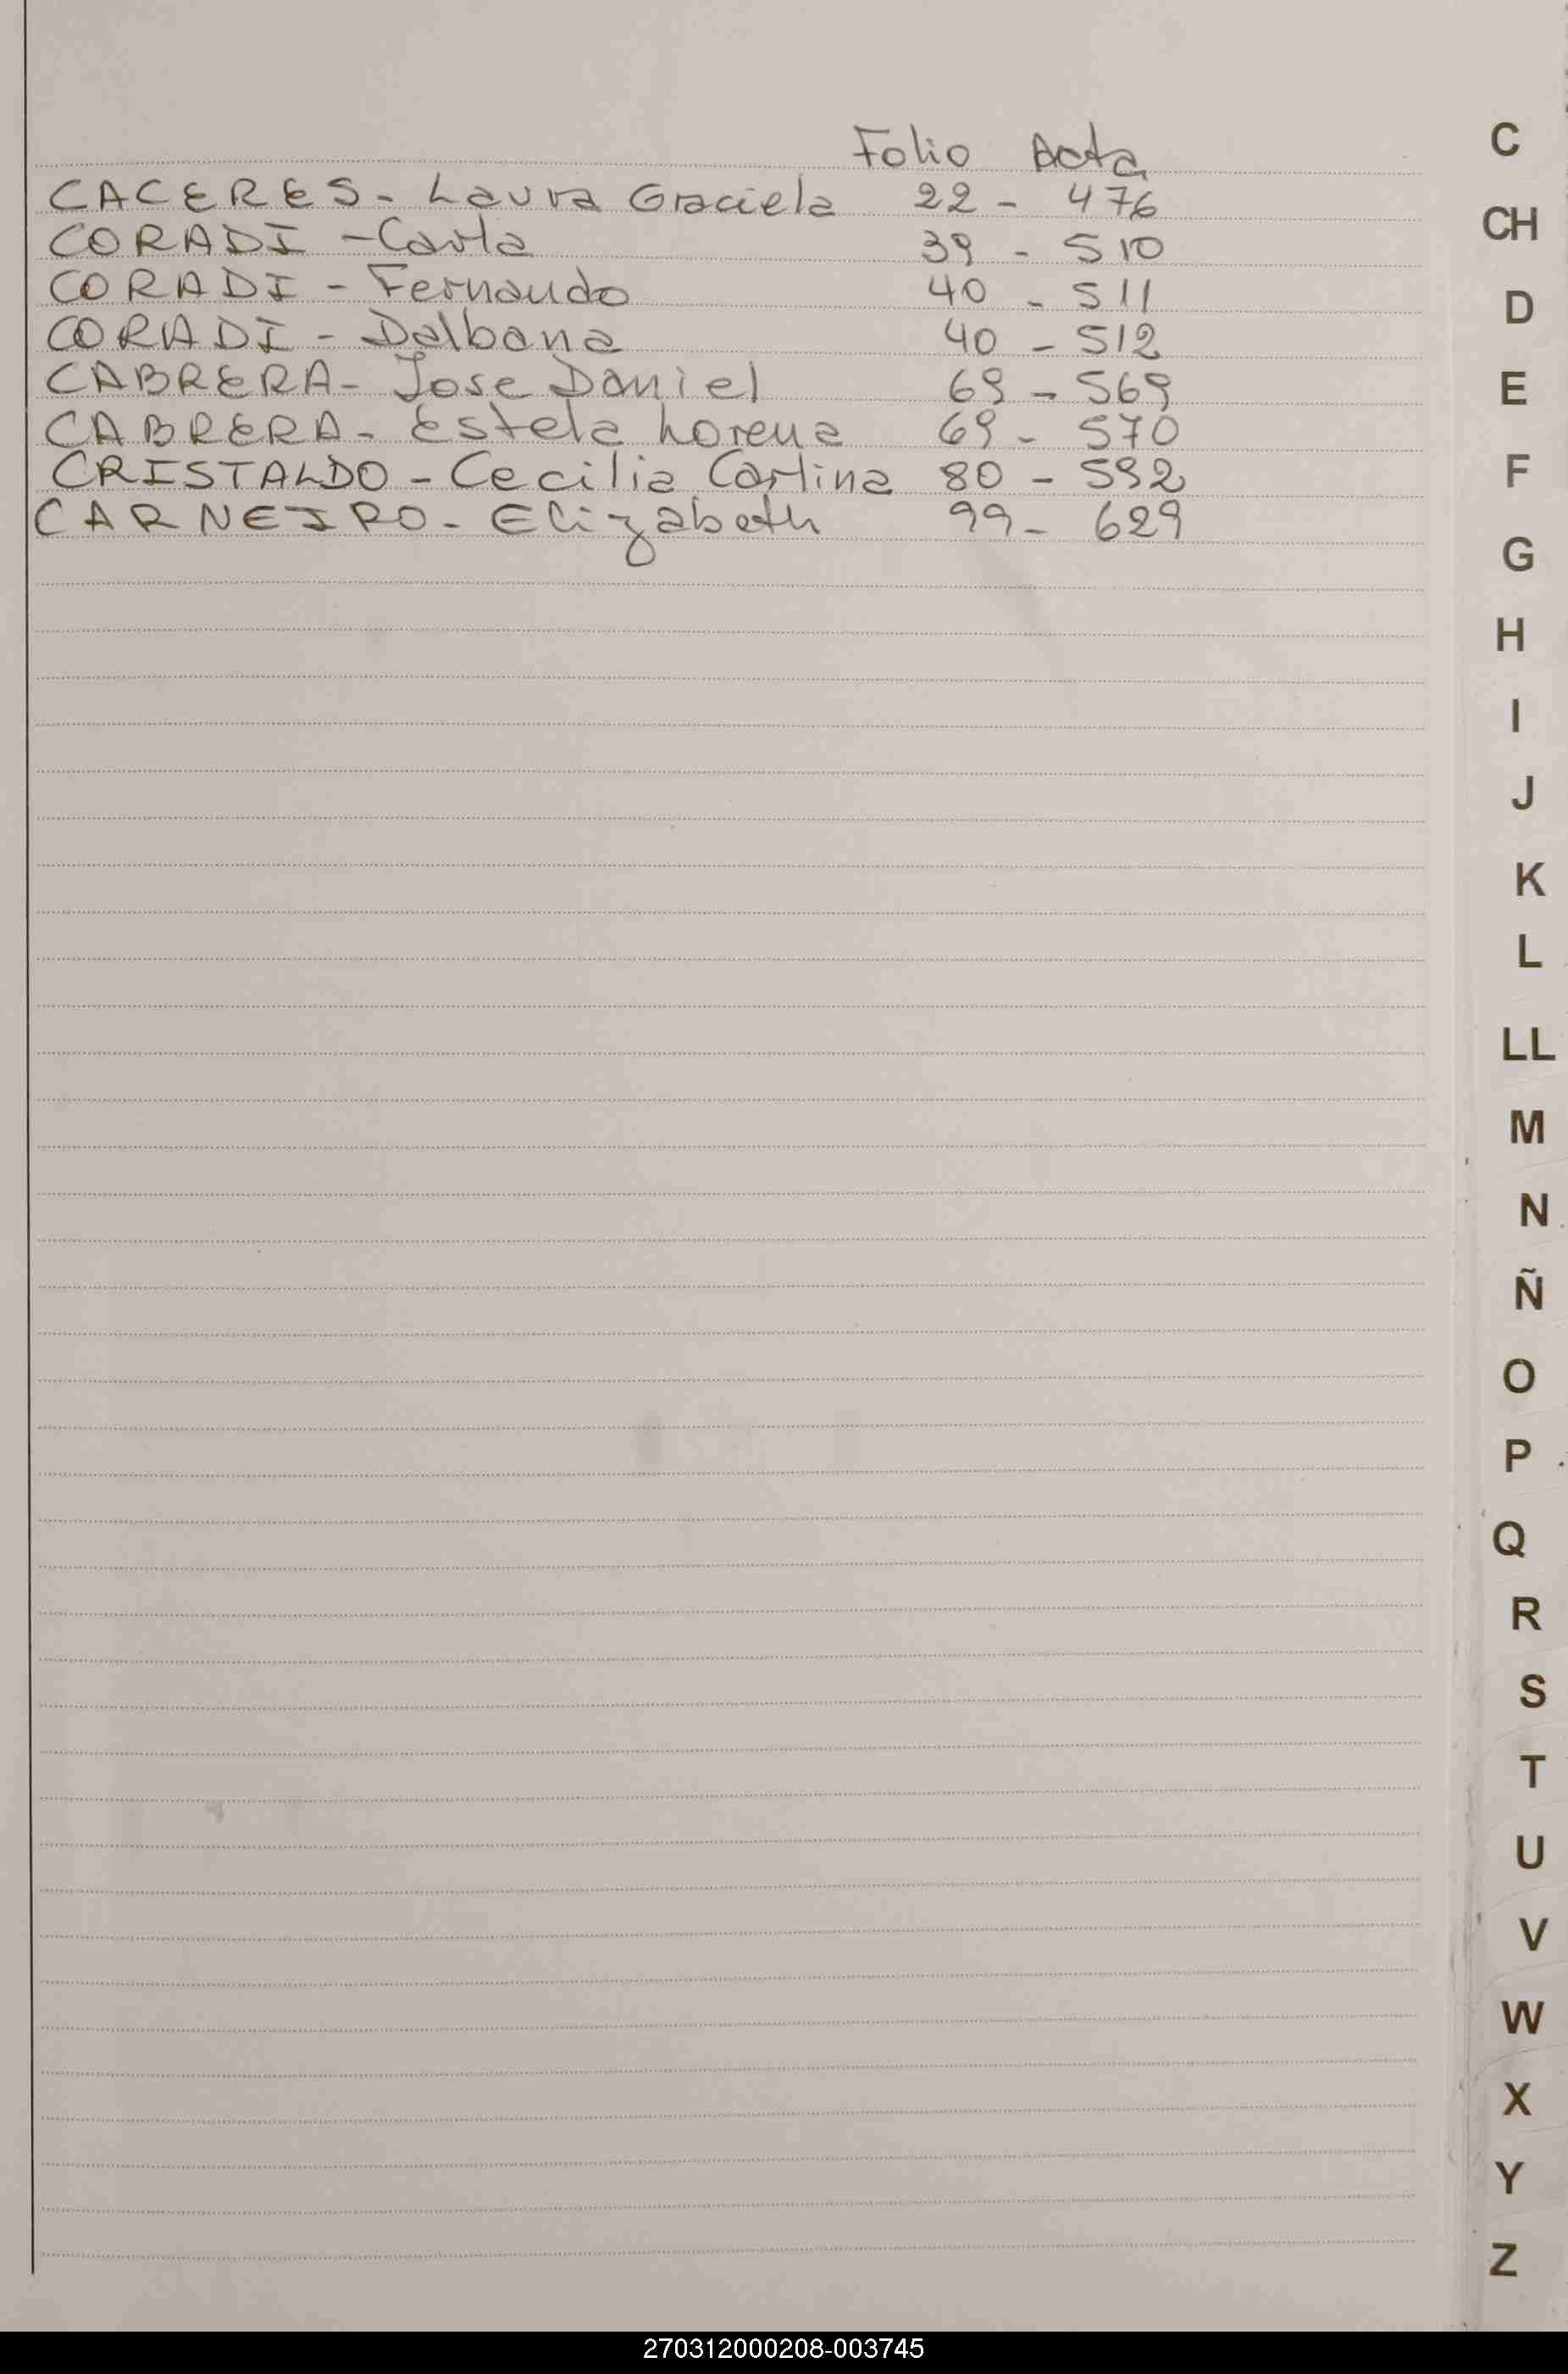 Folio Acta
CACERES - Laura Graciela 22 - 476
CORADI - Carla 39 - 510
CORADI - Fernando 40 - 511
CORADI - Dalbana 40 - 512
CABRERA - Jose Daniel 69 - 569
CABRERA - Estela Lorena 69 - 570
CRISTALDO - Cecilia Carlina 80 - 592
CARNEIRO - Elizabeth 99 - 629
C
CH
D
E
F
G
H
I
J
K
L
LL
M
N
Ñ
O
P
Q
R
S
T
U
V
W
X
Y
Z
270312000208-003745